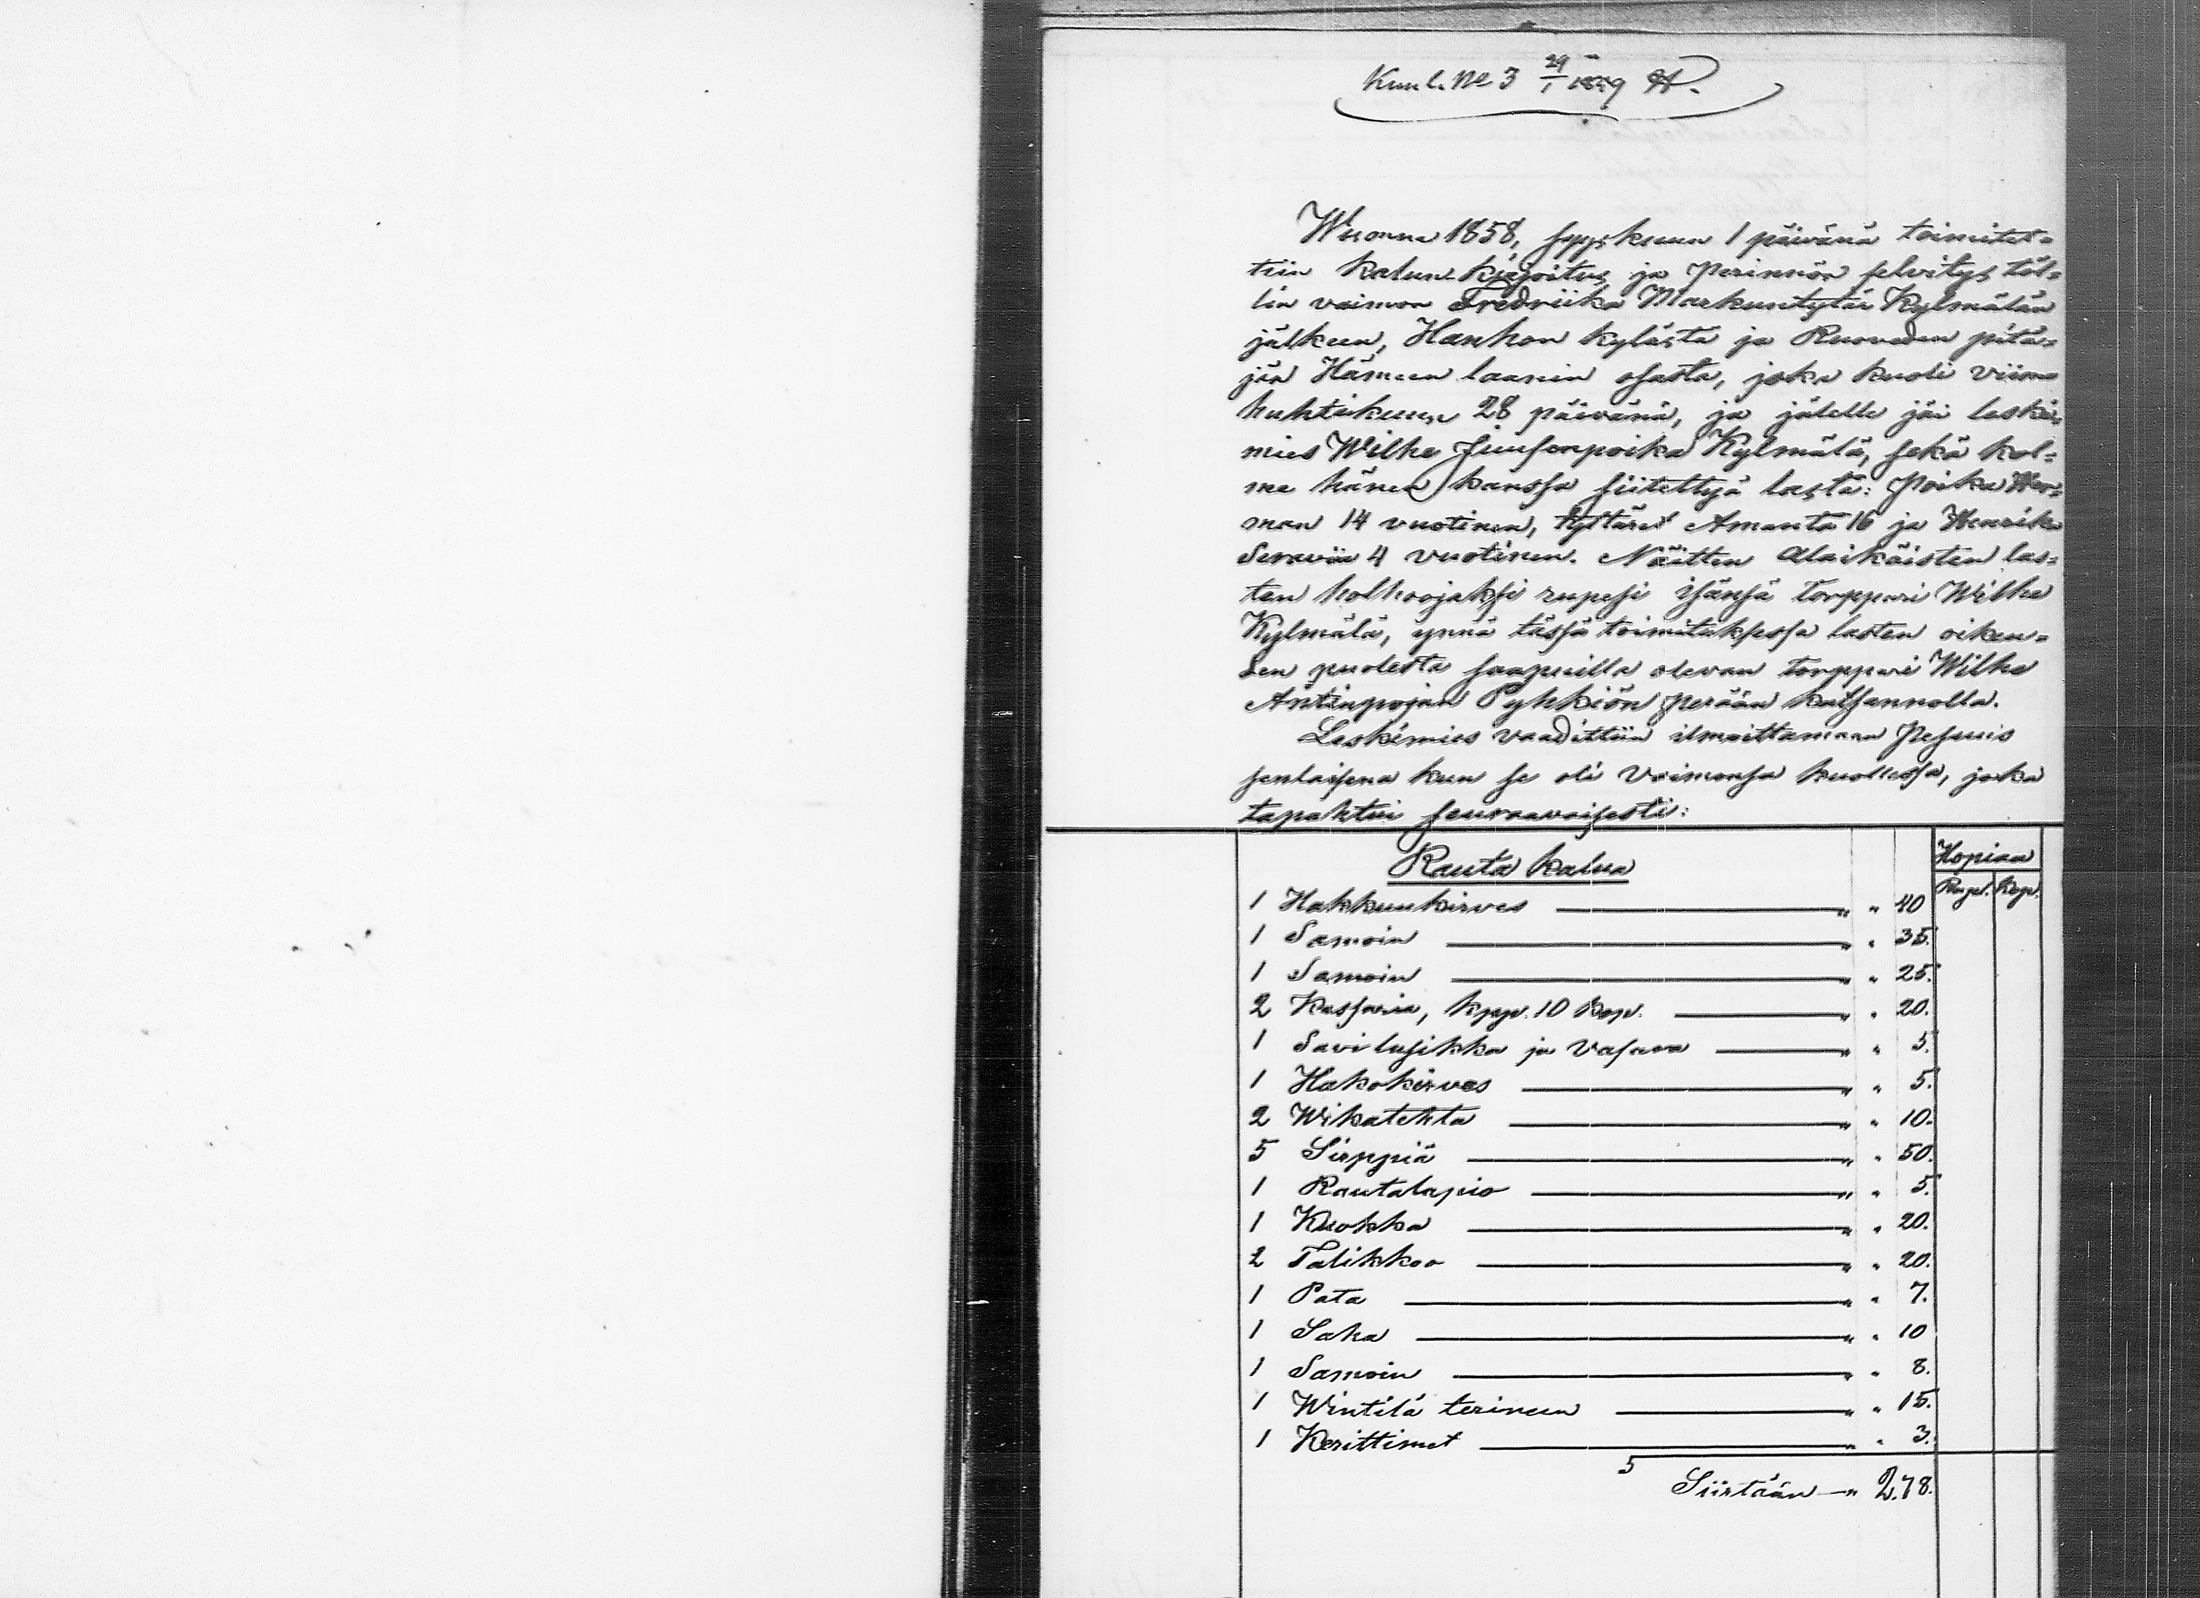 Kuul. No 3 29/1 1859
Wuonna 1858, syyskuun 1 päivänä toimitet=
tiin kalun kirjoitus ja Perinnön selvitys töl=
lin vaimon Fredriika Markuntytär Kylmälän
jälkeen, Hanhon kylästä ja Ruoveden pitä=
jän Hämeen laanin osasta, joka kuoli viime
huhtikuun 28 päivänä, ja jälelle jäi leski=
mies Wilhe Juusenpoika Kylmälä, sekä kol=
me hänen kanssa siitettyä lasta: Poika Her=
man 14 vuotinen, tyttäret Amanta 16 ja Henrika
Seraviia 4 vuotinen. Näitten alaikäisten las=
ten holhoojaksi rupesi isänsä torppari Wilhe
Kylmälä, ynnä tässä toimituksessa lasten oikeu=
den puolesta saapuilla olevan torppari Wilhe
Antinpojan Pyhkiön perään katsannolla.
Leskimies vaadittiin ilmoittamaan Pesuis
senlaisena kun se oli vaimonsa kuollessa, joka
tapahtui seuraavaisesti:
Rauta kalua Hopian
Rupl. Kop.
1 Hakkuukirves " " 40
1 Samoin " " 35.
1 Samoin " " 25.
2 Kassaria, kpp. 10 kop. " " 20.
1 Savilusikka ja Vasara " " 5.
1 Hakokirves " " 5.
2 Wikatehta " " 10.
5 Sirppiä " " 50.
1 Rautalapio " " 5.
1 Kuokka " " 20.
2 Talikkoo " " 20.
1 Pata " " 7.
1 Saha " " 10
1 Samoin " " 8.
1 Wintilä terineen " " 15.
1 Kerittimet " " 3.
5
Siirtään " 2.78.